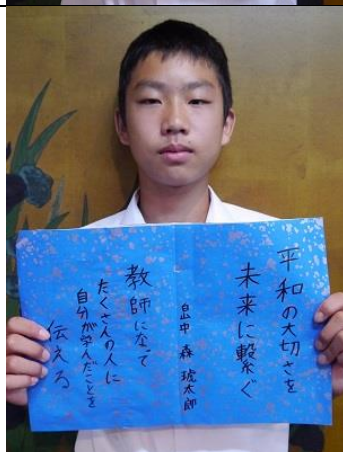 平和の大切さを
未来に繋ぐ
皀中 森 琥太郎
教師になって
たくさんの人に
自分が学んだことを
伝えろ